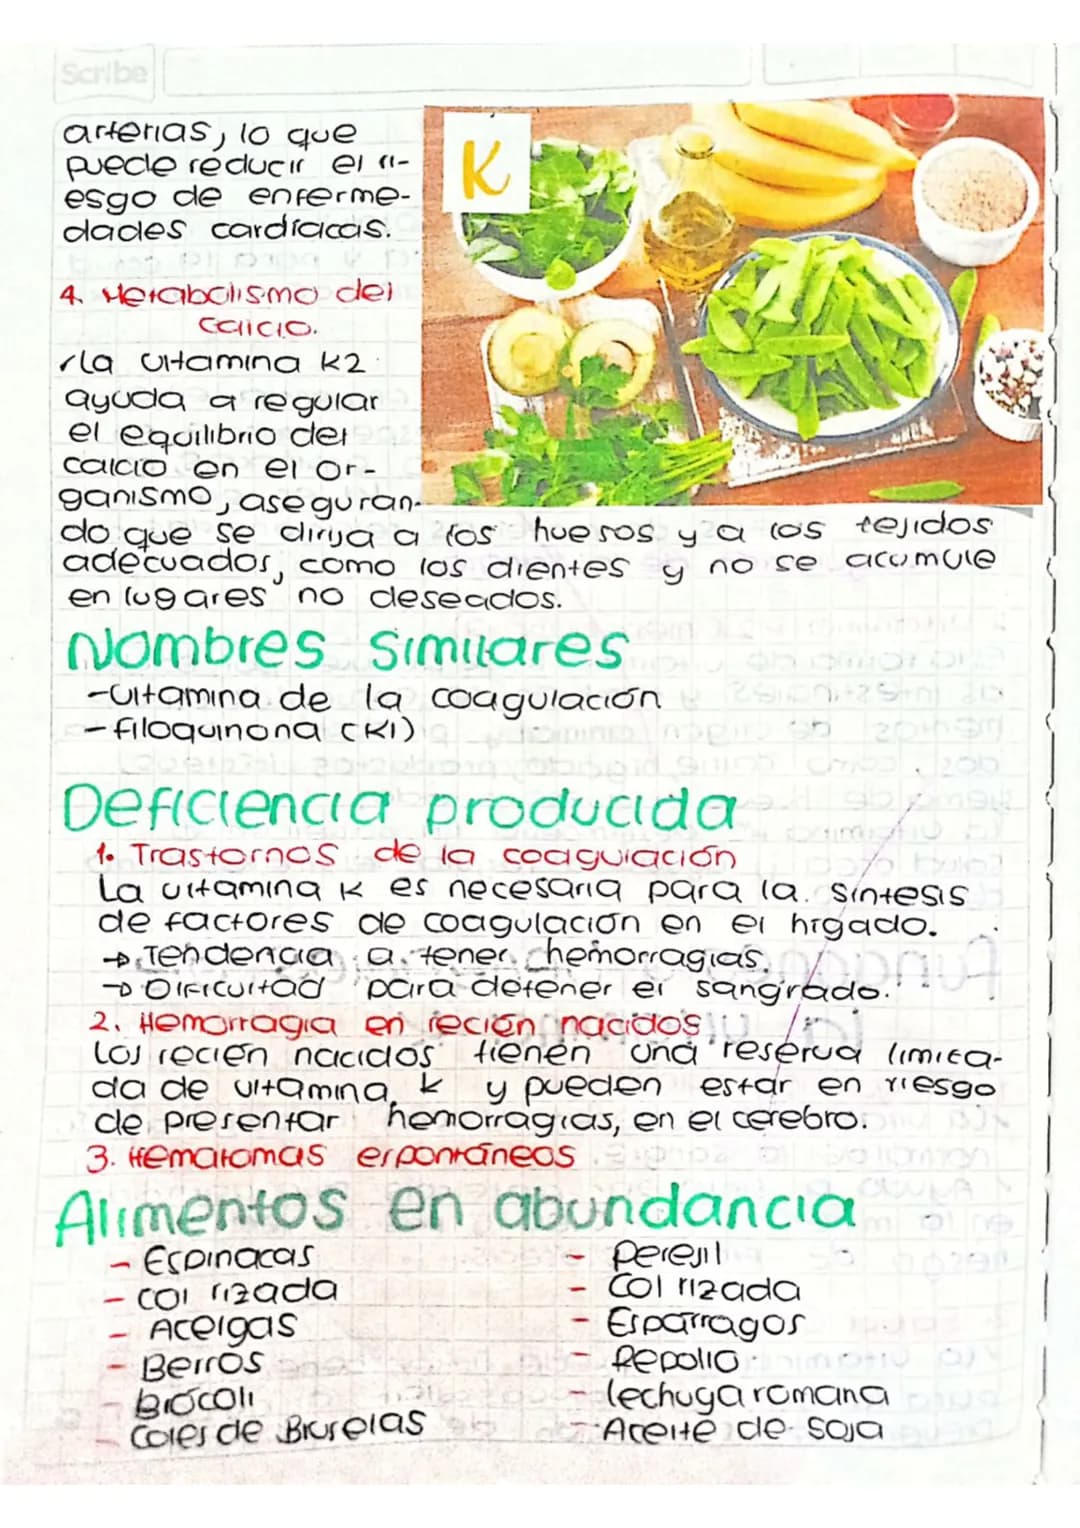 Scribe
arterias, lo que
puede reducir el ri-
esgo de enferme-
dades cardíacas.
K
4. Metabolismo del
calcio.
✓la vitamina K2
ayuda a regular
el equilibrio del
calcio en el or-
ganismo, aseguran-
do que se dirija a los huesos y a los tejidos
adecuados, como los dientes y no se acumule
en lugares no deseados.
Nombres similares
-vitamina de la coagulación
-filoquinona (K1)
Deficiencia producida
1. Trastornos de la coagulación
La vitamina K es necesaria para la síntesis
de factores de coagulación en el hígado.
→ Tendencia a tener hemorragias.
→ Dificultad para detener el sangrado.
2. Hemorragia en recién nacidos
Los recién nacidos tienen una reserva limita-
da de vitamina K y pueden estar en riesgo
de presentar hemorragias, en el cerebro.
3. Hematomas espontáneos
Alimentos en abundancia
- Espinacas
- col rizada
- Acelgas
- Berros
- Brócoli
- Coles de Bruselas
- Perejil
- Col rizada
- Espárragos
- Repollo
- lechuga romana
- Aceite de soja